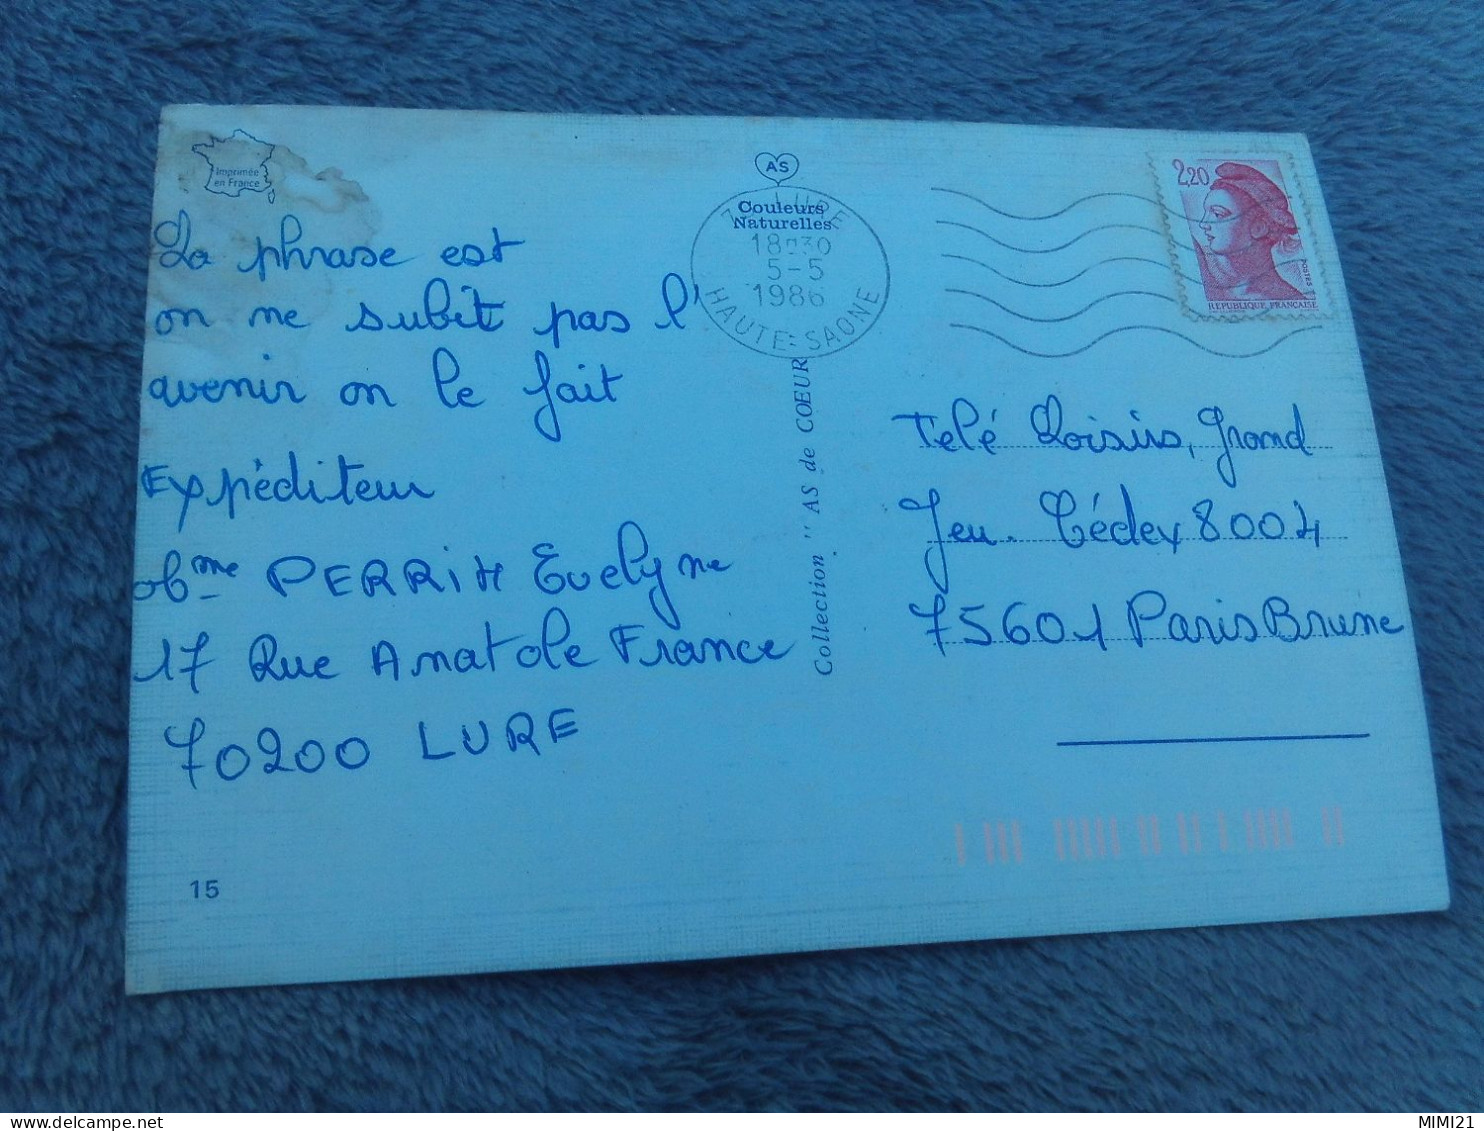 Imprimée
en France
La phrase est
on ne subit pas l'
avenir on le fait
Expéditeur
Mme PERRIN Evelyne
17 Rue Anatole France
70200 LURE
15
AS
Couleurs
Naturelles
LURE
18 30
5-5
1986
HAUTE-SAONE
Collection "AS de COEUR
2,20
POSTES
REPUBLIQUE FRANÇAISE
Télé Loisirs, Grand
Jeu. Cédex 8004
75601 Paris Brune
MIMI21